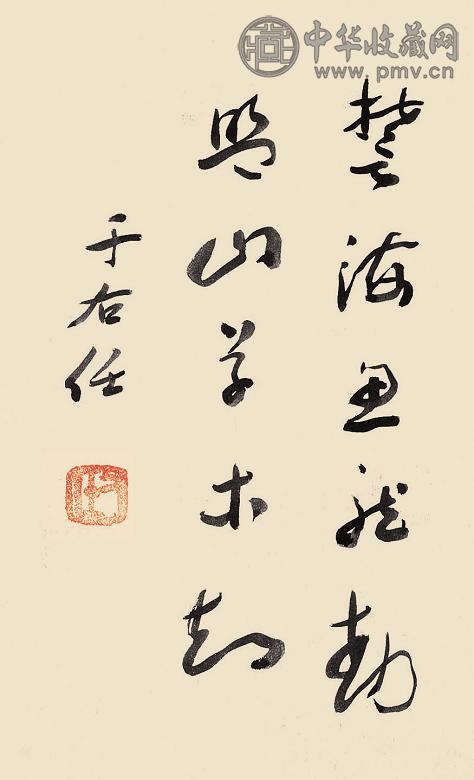 中华收藏网
www.pmv.cn
誓海魚龍動
盟山草木知
于右任